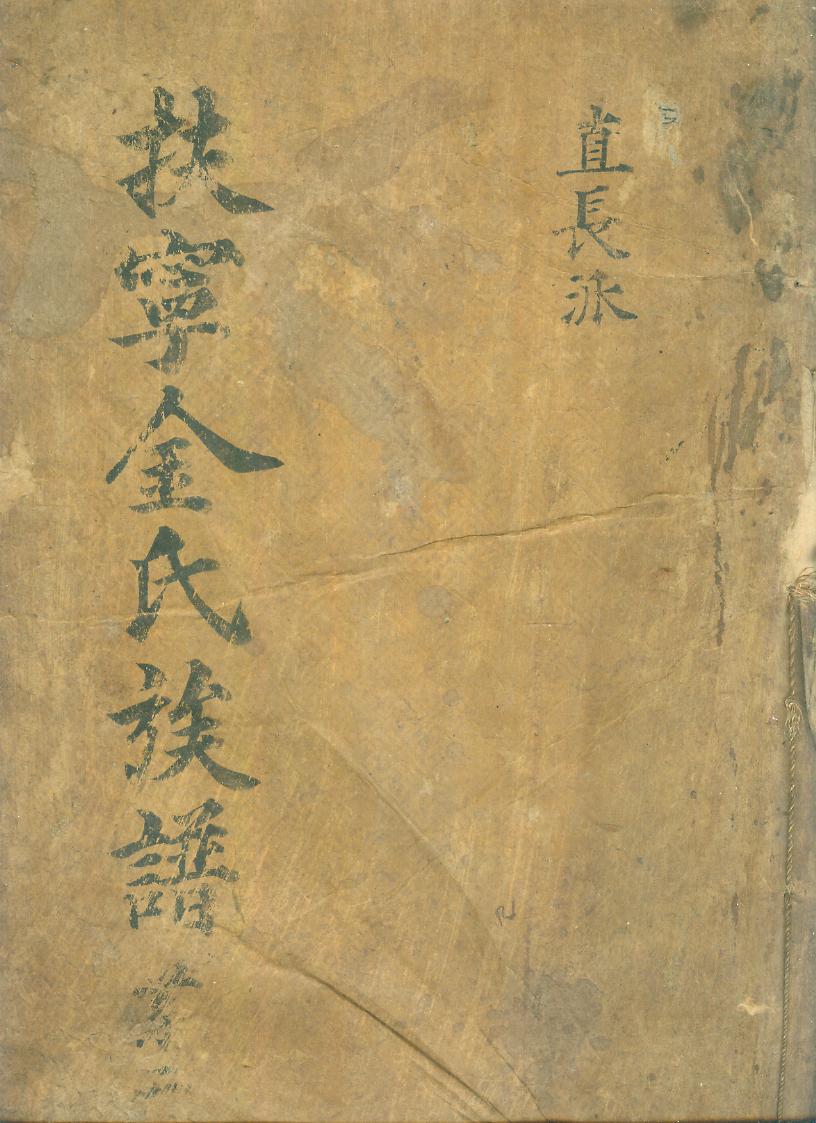 直長派
扶寧金氏族譜